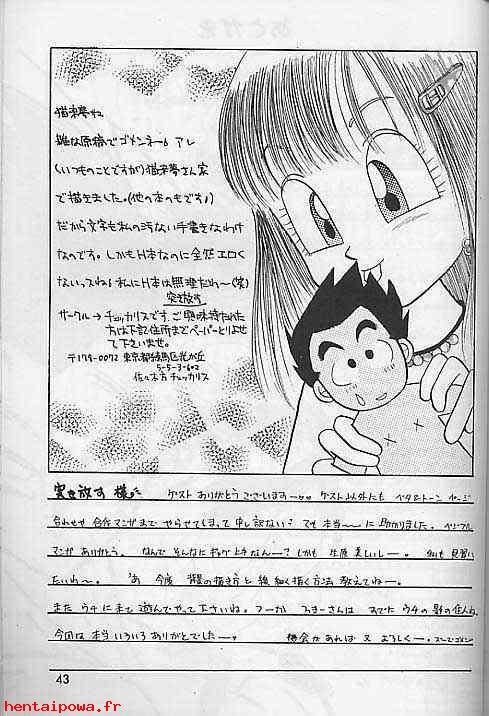 あとがき
雑な原稿でゴメンネー。アレ
(いつものことですが)猫未夢さん家
で描きました。(他の本のもです♪)
だから文字も私の汚ない手書きなわけ
なのです。しかもH本なのに全然エロく
ないってね。私にH本は無理だわ〜(笑)
突き放す
サークル→チェッカリスです。ご興味持たれた
方は下記住所までペーパーとりよせ
て下さいませ。
〒179-0072 東京都練馬区光が丘
5-5-3-602
佐々木方チェッカリス
突き放す 様
ゲスト ありがとう ございますー。 ゲスト以外にも ベタ&トーン
合わせや 合作 マンガまで やらせてしまって 申し訳ない? でも 本当〜に 助かりました。
マンガ ありがとう。 なんで そんなに ギャグ 上手なんー? しかも 生原 美しいしー。 見習い
たいわ〜。 あ 今度 背景の描き方と 線 細く描く方法 教えてねー。
また ウチに来て 遊んでやって 下さいね。
今回は 本当 いろいろ ありがとでしたー。 機会があれば 又 よろしくー。
43
hentaipowa.fr